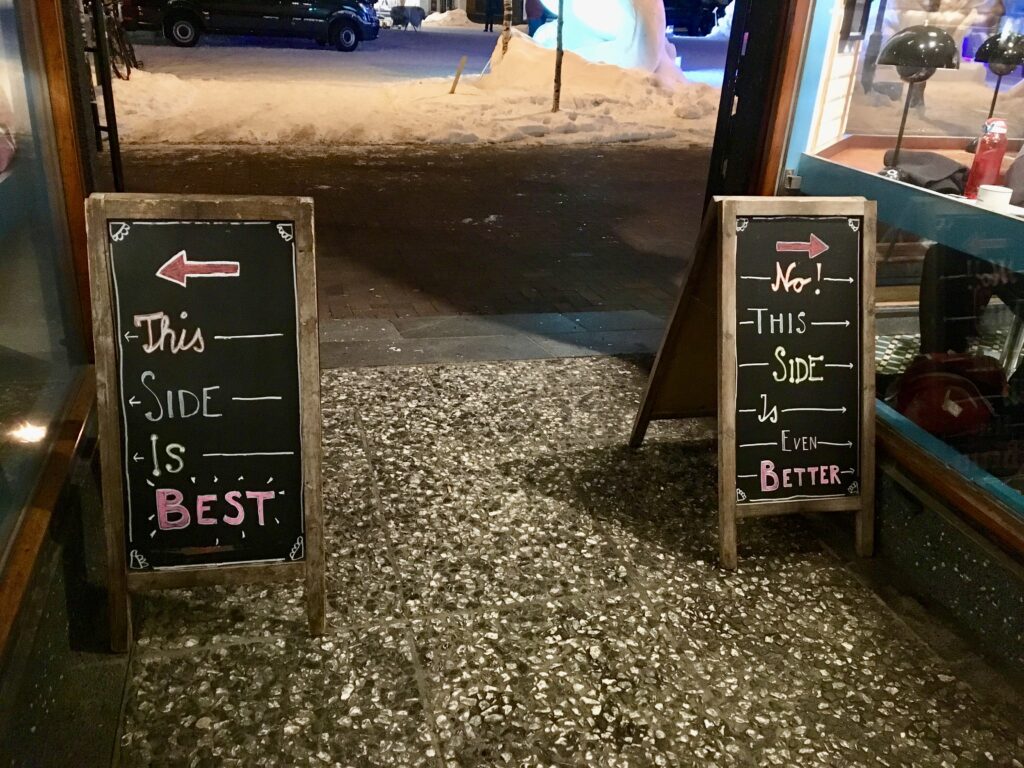 This
SIDE
Is
BEST
No!
THIS
SIDE
Is
EVEN
BETTER